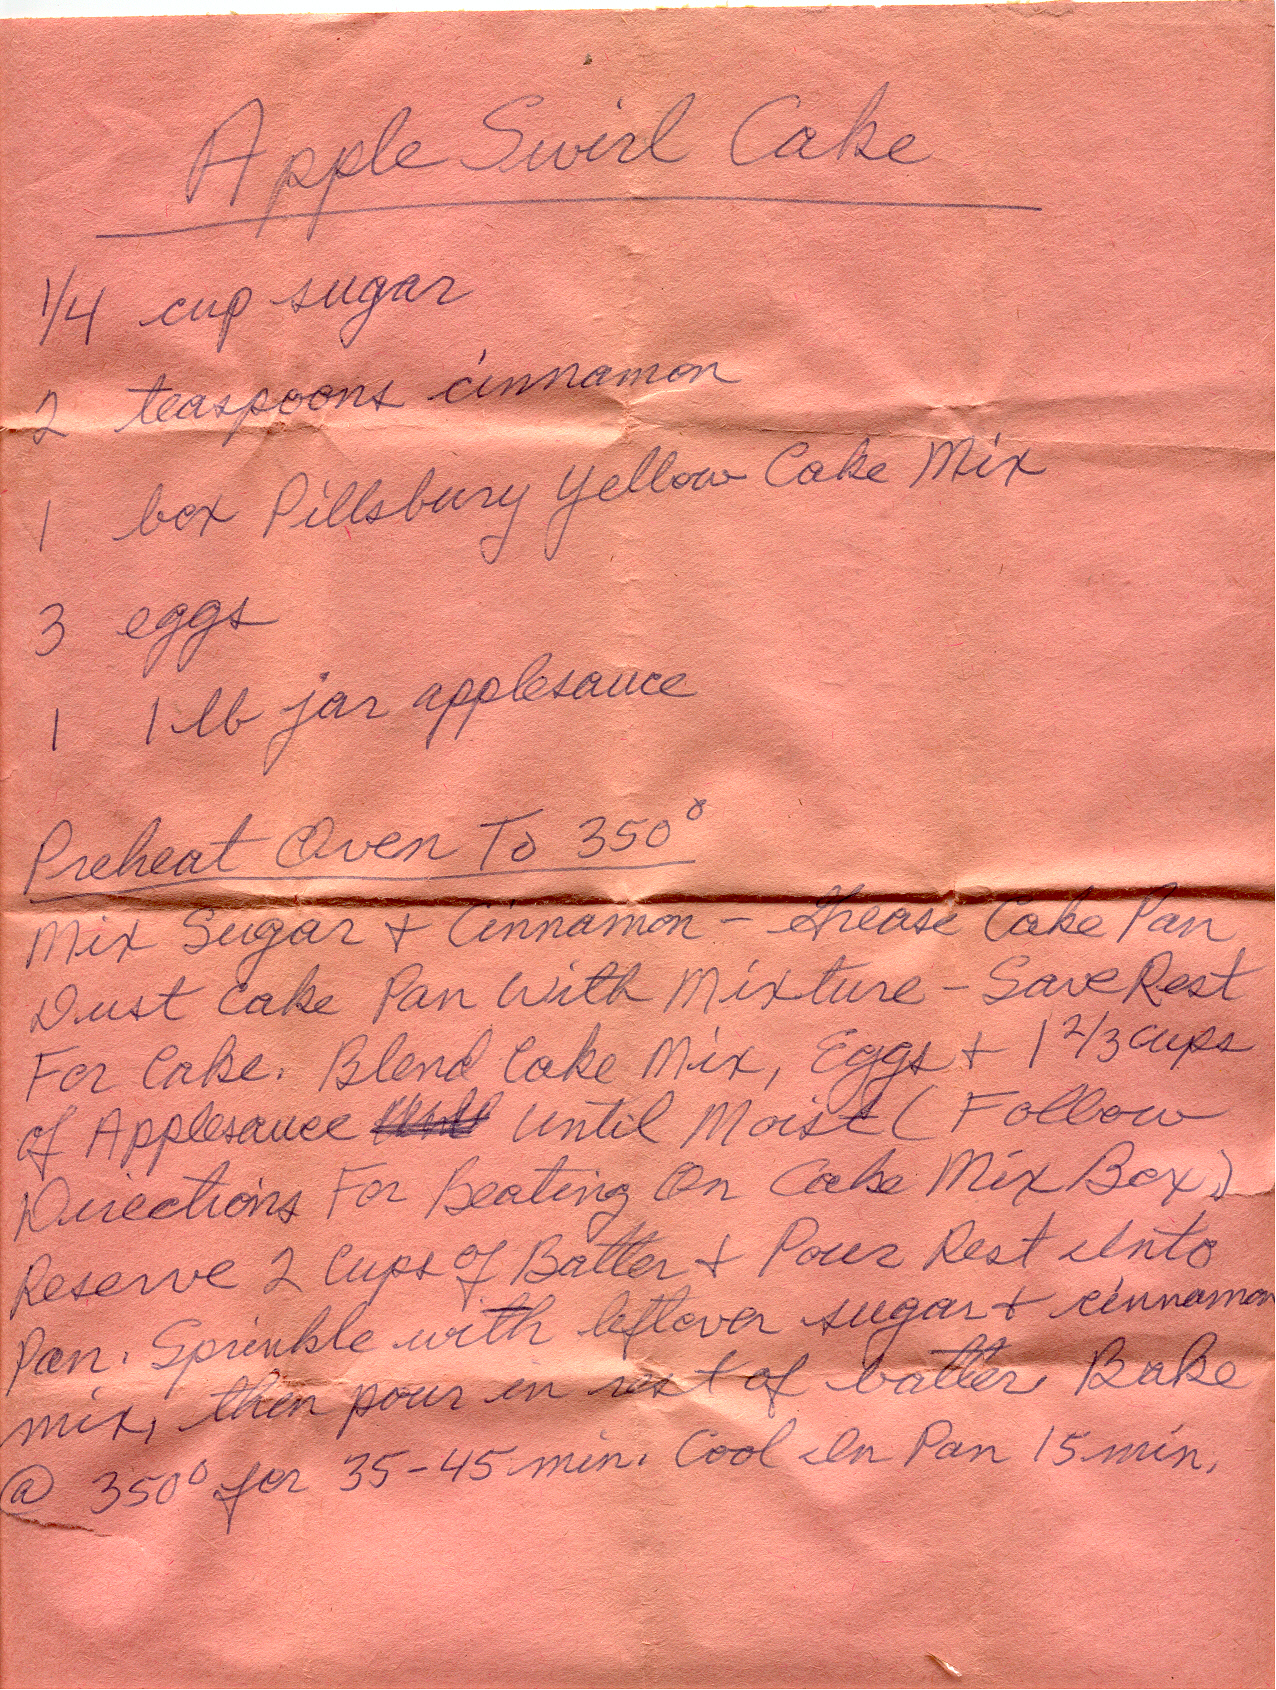 Apple Swirl Cake
1/4 cup sugar
2 teaspoons cinnamon
1 box Pillsbury Yellow Cake Mix
3 eggs
1 1 lb jar applesauce
Preheat Oven To 350°
Mix Sugar + Cinnamon - Grease Cake Pan
Dust Cake Pan With Mixture - Save Rest
For Cake. Blend Cake Mix, Eggs + 1 2/3 cups
of Applesauce Until Moist ( Follow
Directions For Beating On Cake Mix Box)
Reserve 2 Cups of Batter + Pour Rest Into
Pan. Sprinkle with leftover sugar + cinnamon
mix, then pour in rest of batter. Bake
@ 350° for 35-45 min. Cool In Pan 15 min.